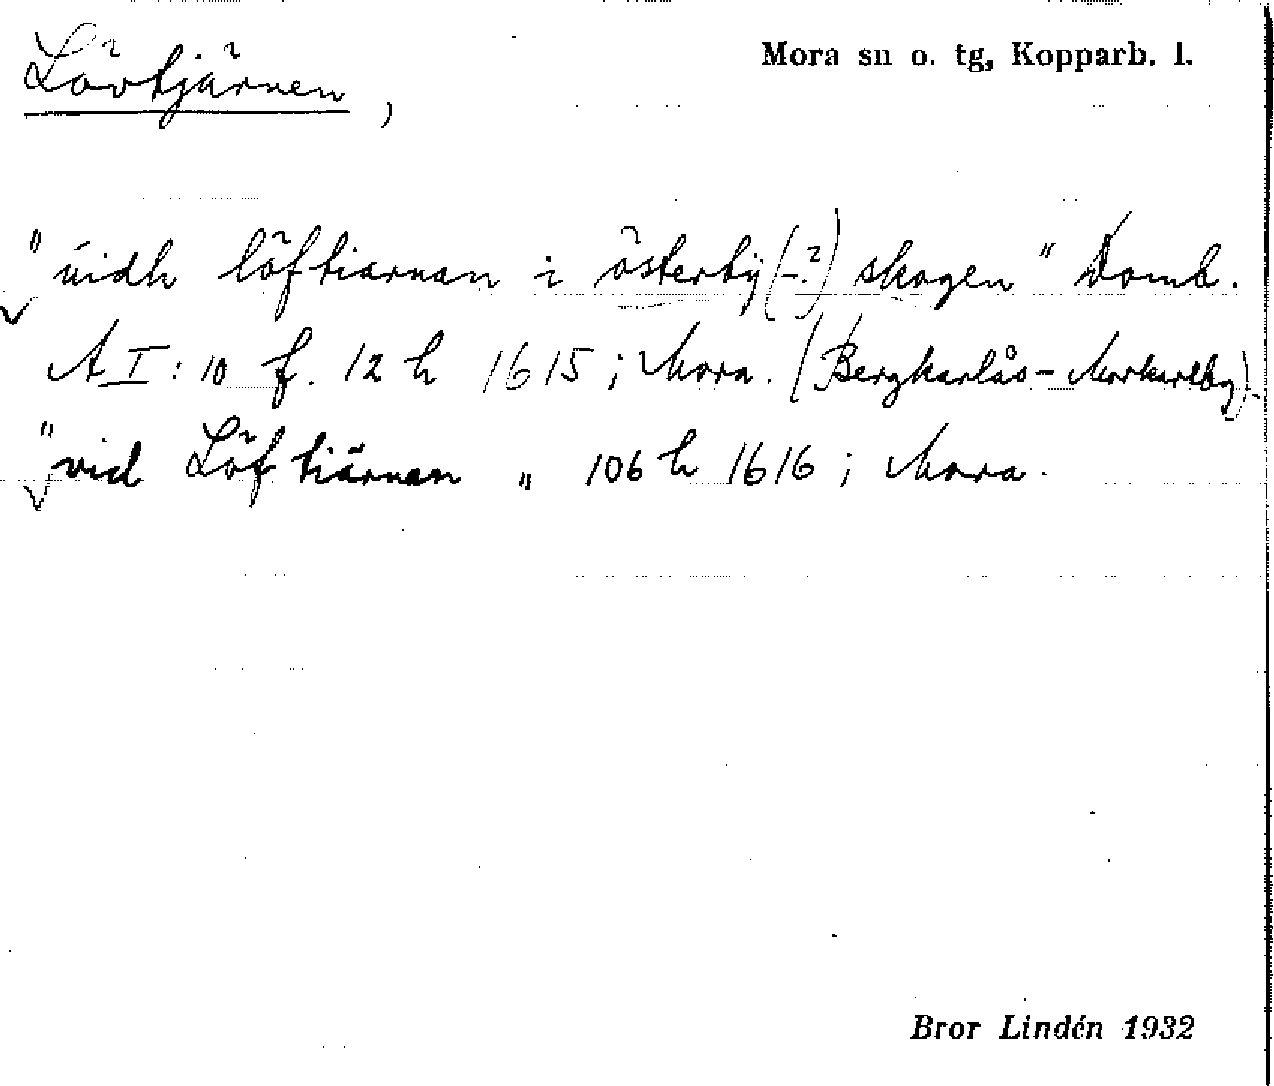 Lövtjärnen,
Mora sn o. tg, Kopparb. l.
"uidh löftiarnan i österby(-?) skogen" Domb.
A I: 10 f. 12 h 1615; Mora. (Bergkarlås-Morkarlby).
"vid Löftiärnan" 106 h 1616; Mora.
Bror Lindén 1932